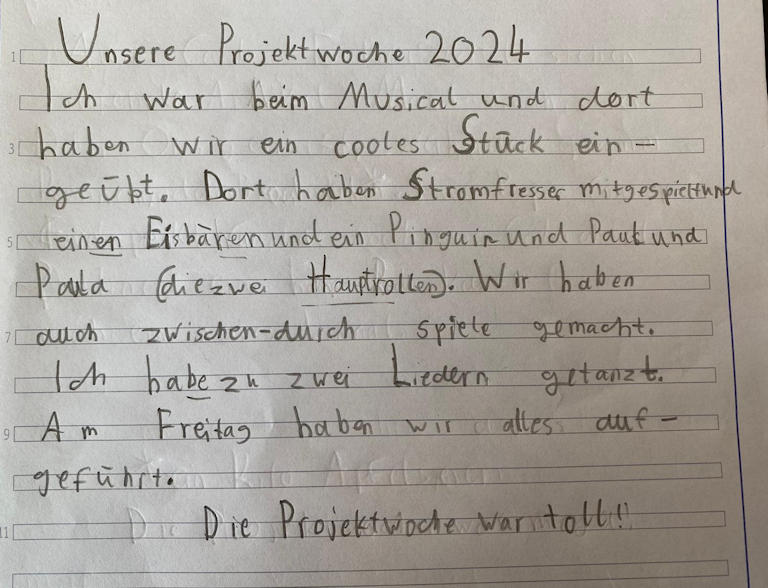 Unsere Projektwoche 2024
Ich war beim Musical und dort
haben wir ein cooles Stück ein-
geübt. Dort haben Stromfresser mitgespielt und
einen Eisbären und ein Pinguin und Paul und
Paula (die zwei Hauptrollen). Wir haben
auch zwischen-durch spiele gemacht.
Ich habe zu zwei Liedern getanzt.
Am Freitag haben wir alles auf-
geführt.
Die Projektwoche war toll!!